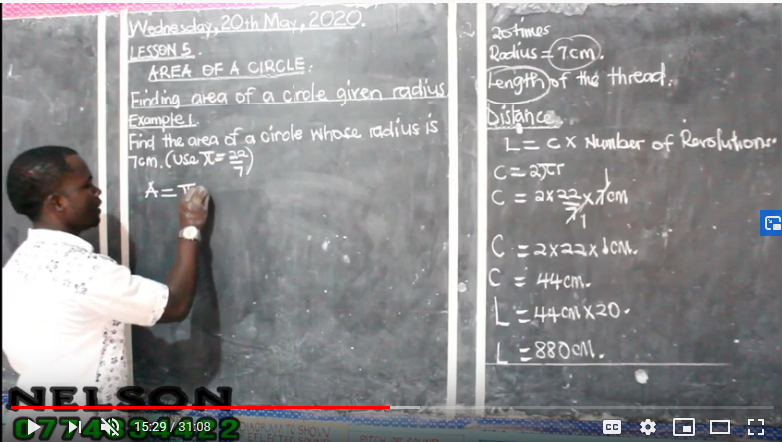 Wednesday, 20th May, 2020.
LESSON 5.
AREA OF A CIRCLE.
Finding area of a circle given radius
Example 1.
Find the area of a circle whose radius is
7cm. (use π = 22/7)
A = π
20 times
Radius = 7cm.
Length of the thread.
Distance
L = C × Number of Revolutions.
C = 2πr
C = 2 × 22/7 × 7cm
1
1
C = 2×22×1cm.
C = 44cm.
L = 44cm×20.
L = 880cm.
NELSON
15:29 / 31:08
CC